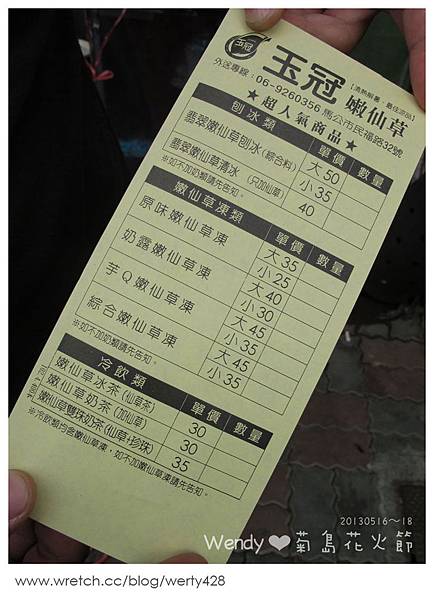 玉冠
玉冠 嫩仙草
【清熱解暑·最佳涼品】
外送專線：06-9260356 馬公市民福路32號
★超人氣商品★
刨冰類 單價 數量
翡翠嫩仙草刨冰(綜合料) 大50
小35
翡翠嫩仙草清冰(只加仙草) 40
※如不加奶類請先告知。
嫩仙草凍類 單價 數量
原味嫩仙草凍 大35
小25
奶露嫩仙草凍 大40
小30
芋Q嫩仙草凍 大45
小35
綜合嫩仙草凍 大45
小35
※如不加奶類請先告知。
冷飲類 單價 數量
嫩仙草冰茶(仙草茶) 30
嫩仙草奶茶(加仙草) 30
嫩仙草雙珠奶茶(仙草+珍珠) 35
※冷飲類均含嫩仙草凍，如不加嫩仙草凍請先告知。
20130516~18
Wendy❤菊島花火節
www.wretch.cc/blog/werty428